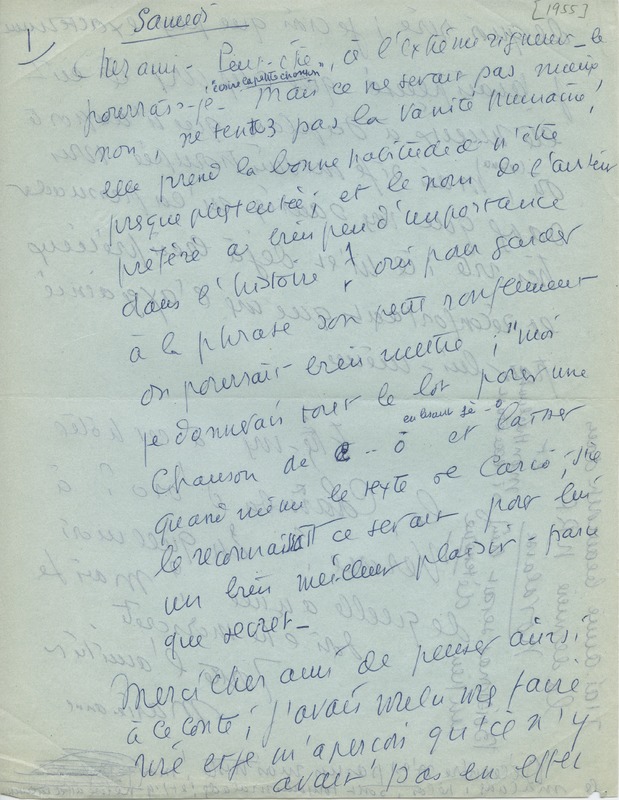 [1955]
1) Samedi
cher ami - Peut-être, à l'extrême rigueur - le
pourrais-je. Mais ce ne serait pas mieux
non, ne tentez pas la vanité humaine,
elle prend la bonne habitude n'être
presque plus et le nom de l'auteur
préféré a bien peu d'importance
dans l'histoire oui pour garder
à la phrase son petit ronflement
on pourrait bien mettre ; "moi
je donnerais tout le lot pour une
en lisant
chanson de - - ô et laisser
quand même le texte de Carco, s'il
le reconnaissait ce serait pour lui
un bien meilleur plaisir - parce
que secret -
Merci cher ami de penser aussi
à ce conte ; j'avais voulu me faire
et je m'aperçois qu'il n'y
avait pas en effet